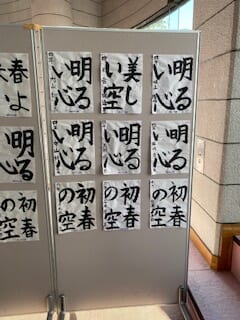 明る
い心
美し
い空
明る
い心
明る
い心
明る
い心
明る
い心
初春
の空
初春
の空
初春
の空
春よ
明る
い心
初春
の空